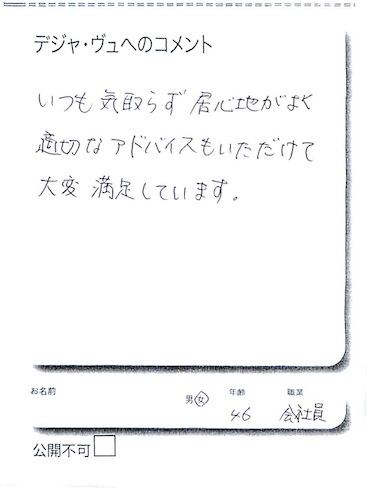 デジャ・ヴュへのコメント
いつも気取らず居心地がよく
適切なアドバイスもいただけて
大変満足しています。
お名前 男・女 年齢 職業
46 会社員
公開不可